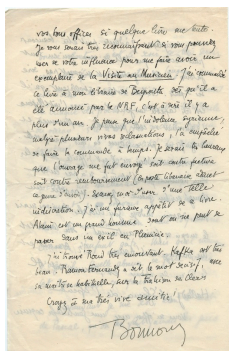 vos bons offices si quelque livre me tente.
Je vous serais très reconnaissant si vous pouviez
user de votre influence pour me faire avoir un
exemplaire de la Visite au Musicien. J'ai commandé
ce livre à mon libraire de Beyrouth dès qu'il a
été annoncé par la NRF, c'est à dire il y a
plus d'un an. Je pense que l'indolence syrienne,
malgré plusieurs vives réclamations, l'a empêché
de faire la commande à temps. Je serais très heureux
que l'ouvrage me fut envoyé soit contre facture
soit contre remboursement (la poste libanaise admet
ce genre d'envoi). Serai-je sûr d'une telle
J'ai un furieux appétit de ce livre
Alain est un grand homme dont on ne peut se
passer dans un exil en Phénicie.
J'ai trouvé très émouvant. Kafka est très
bien. Ramon Fernandez a dit le mot décisif, avec
sa netteté habituelle, sur la Trahison des Clercs
Croyez à ma très vive amitié!
Bounoure